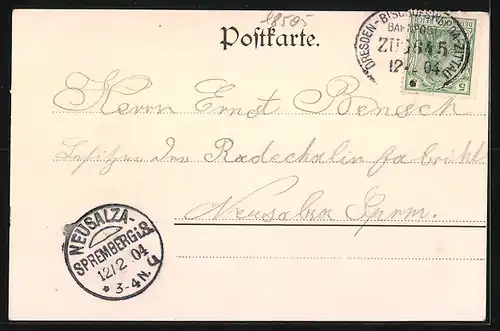 18505
Postkarte.
DRESDEN-BISCHOFSWERDA-ZITTAU
BAHNPOST
ZUG 845
12 2 04
5
Herrn Ernst Bensch
Besitzer der
Neusalza Sprm.
NEUSALZA-
SPREMBERG i.S.
12/2 04
* 3-4 N. b